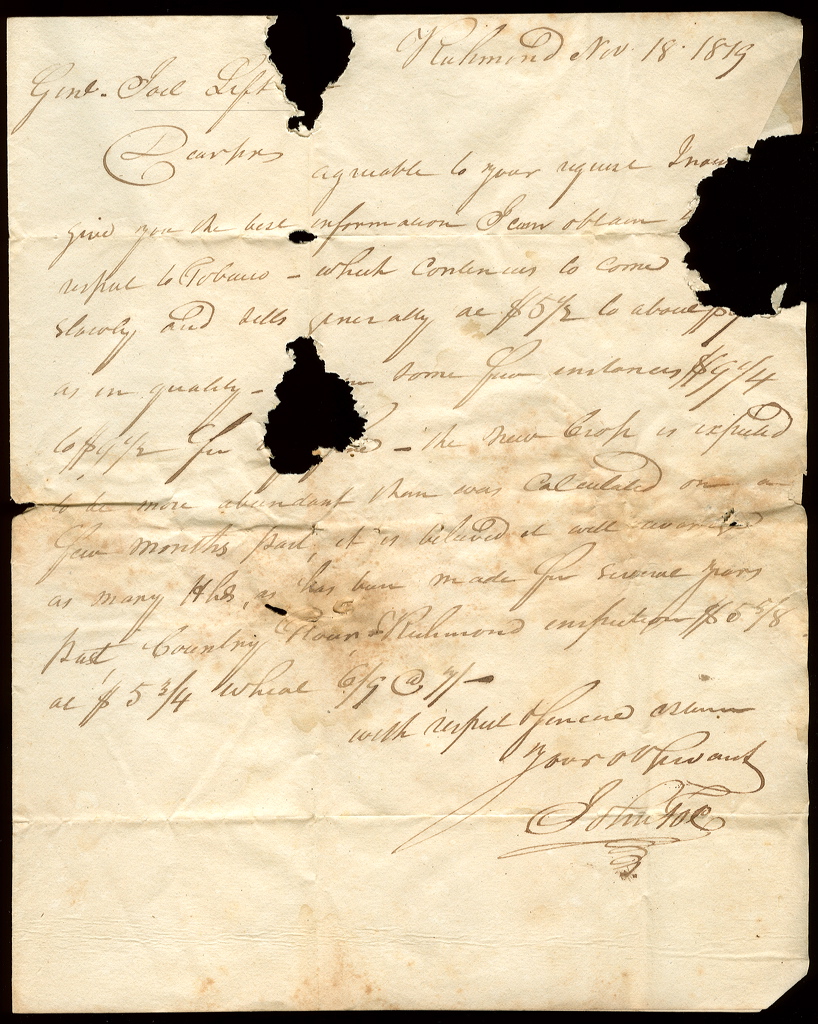 Richmond Nov. 18. 1819
Genl. Joel Left
Dear Sir
agreable to your request I now
give you the best information I can obtain
respect to Tobacco – which continues to come
slowly and sells generally at $5 1/2 to about
as in quality – some few instances $9 1/4
to $9 1/2 for – the new Crop is expected
to be more abundant than was Calculated on a
few months past, it is believed it will
as many Hhds, as has been made for several years
past Country Flour Richmond inspection $5 5/8
at $5 3/4 wheat 6/9 @ 7/–
with respect & sincere esteem
your obt Servant
John